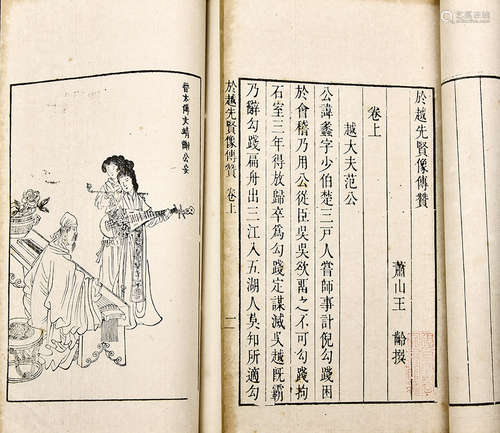 於越先賢像傳贊
蕭山王 齡撰
卷上
越大夫范公
公諱蠡字少伯楚三戶人嘗師事計倪勾踐困
於會稽乃用公從臣吳吳欲畱之不可勾踐拘
石室三年得放歸卒為勾踐定謀滅吳越既霸
乃辭勾踐扁舟出三江入五湖人莫知所適勾
於越先賢像傳贊 卷上 一
晉太傅文靖謝公安